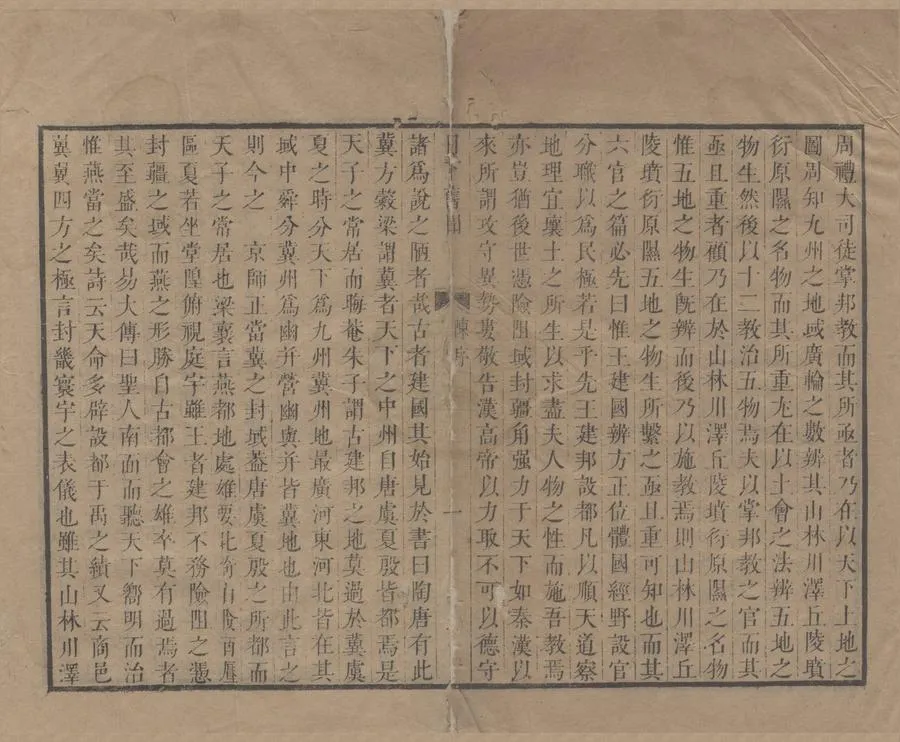 周禮大司徒掌邦教而其所亟者乃在以天下土地之
圖周知九州之地域廣輪之數辨其山林川澤丘陵墳
衍原隰之名物而其所重尤在以土會之法辨五地之
物生然後以十二教治五物焉夫以掌邦教之官而其
亟且重者顧乃在於山林川澤丘陵墳衍原隰之名物
惟五地之物生旣辨而後乃以施教焉則山林川澤丘
陵墳衍原隰五地之物生所繫之亟且重可知也而其
六官之篇必先曰惟王建國辨方正位體國經野設官
分職以爲民極若是乎先王建邦設都凡以順天道察
地理宜壤土之所生以求盡夫人物之性而施吾教焉
亦豈猶後世憑險阻域封疆角强力于天下如秦漢以
來所謂攻守異勢婁敬告漢高帝以力取不可以德守
日下舊聞
陳序
一
諸爲說之陋者哉古者建國其始見於書曰陶唐有此
冀方榖梁謂冀者天下之中州自唐虞夏殷皆都焉是
天子之常居而晦菴朱子謂古建邦之地莫過於冀虞
夏之時分天下爲九州冀州地最廣河東河北皆在其
域中舜分冀州爲幽并營幽與并皆冀地也由此言之
則今之　京師正當冀之封域葢唐虞夏殷之所都而
天子之常居也梁襄言燕都地處雄要北倚山險南壓
區夏若坐堂隍俯視庭宇雖王者建邦不務險阻之憑
封疆之域而燕之形勝自古都會之雄卒莫有過焉者
其至盛矣哉易大傳曰聖人南面而聽天下嚮明而治
惟燕當之矣詩云天命多辟設都于禹之績又云商邑
翼翼四方之極言封畿寰宇之表儀也雖其山林川澤